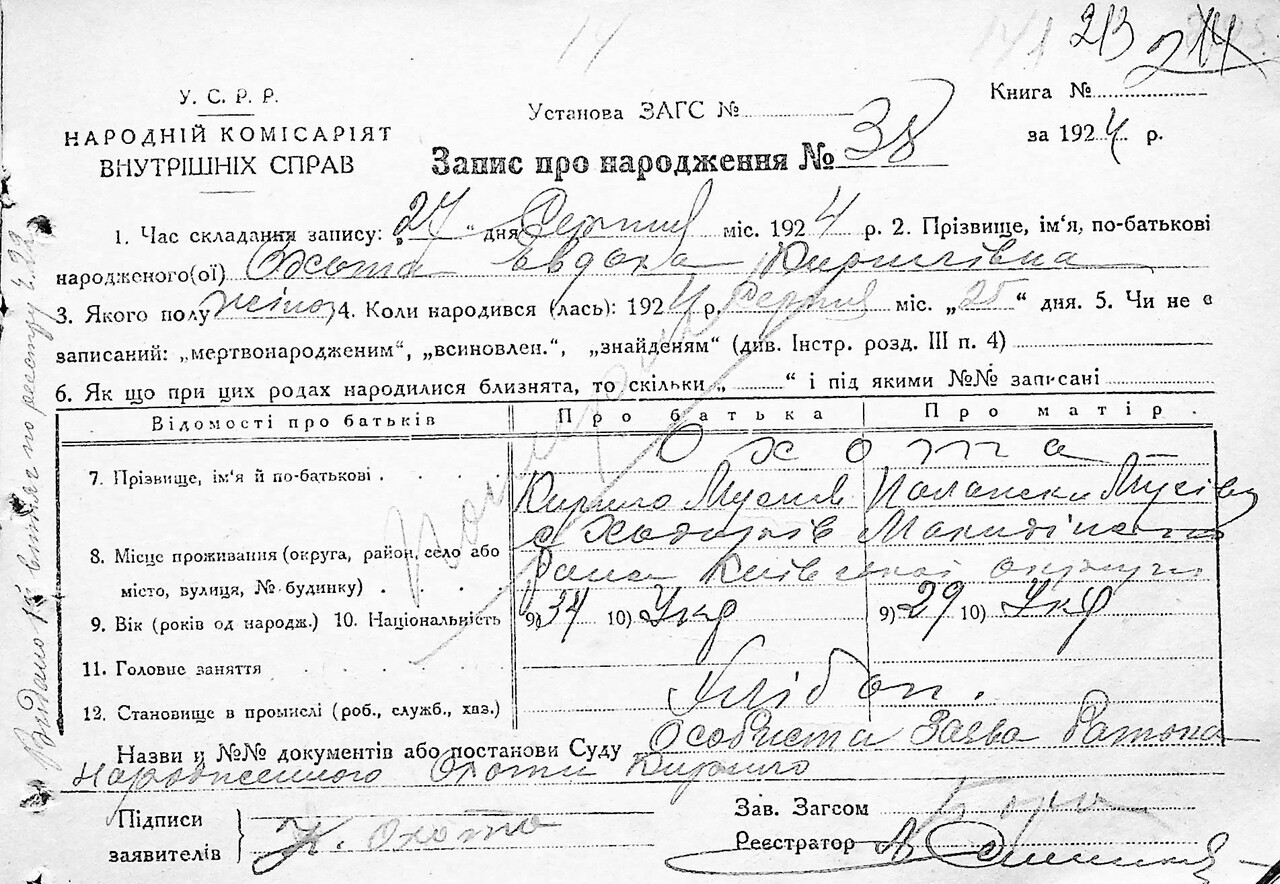 14
141 213 214
У. С. Р. Р.
НАРОДНІЙ КОМІСАРІЯТ
ВНУТРІШНІХ СПРАВ
Установа ЗАГС №
Книга №
за 1924 р.
Запис про народження № 38
1. Час складання запису: „27“ дня Серпня міс. 1924 р. 2. Прізвище, ім‘я, по-батькові
народженого(ої) Охота Евдоха Кирилівна
3. Якого полу жіноч 4. Коли народився (лась): 1924 р. Серпня міс. „25“ дня. 5. Чи не є
записаний: „мертвонародженим“, „всиновлен.“, „знайденям“ (див. Інстр. розд. III п. 4)
6. Як що при цих родах народилися близнята, то скільки „ “ і під якими №№ записані
Відомості про батьків Про батька Про матір.
Охота
7. Прізвище, ім‘я й по-батькові . . . . Кирило Мусиєв
8. Місце проживання (округа, район, село або с Ходорків
місто, вулиця, № будинку) . . . . Київської округи
9. Вік (років од народж.) 10. Національність 9) 34 10) Укр 9) 29 10) Укр
11. Головне заняття
Хлібоп.
12. Становище в промислі (роб., служб., хаз.)
Назви и №№ документів або постанови Суду Особиста Заява
народженного Охоти Кирило
Підписи
заявителів К. Охота
Зав. Загсом
Реєстратор
Видано витяг по реєстру